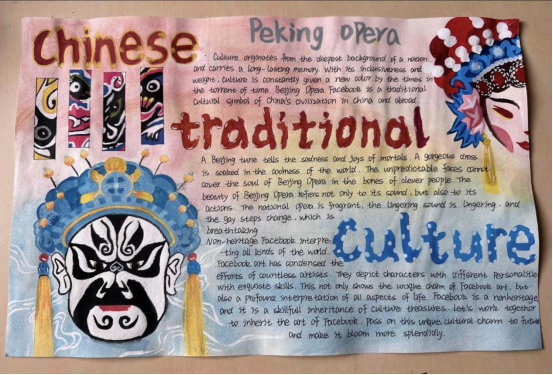 Chinese
Peking opera
Culture originates from the deepest background of a nation
and carries a long-lasting memory. With its inclusiveness and
weight, culture is constantly given a new color by the times in
the torrent of time. Beijing Opera Facebook is a traditional
cultural symbol of China's civilization in China and abroad.
traditional
A Beijing tune tells the sadness and joys of mortals. A gorgeous dress
is soaked in the coolness of the world. The unpredictable faces cannot
cover the soul of Beijing Opera in the bones of clever people. The
beauty of Beijing Opera refers not only to its sound, but also to its
actions. The national opera is fragrant, the lingering sound is lingering, and
the gay steps change, which is
breathtaking
Culture
Non-heritage Facebook interpre-
ting all kinds of the world.
Facebook art has condensed the
efforts of countless artises. They depict characters with different Personalitie
with exquisite skills. This not only shows the unique charm of Facebook art, but
also a profound interpretation of all aspects of life. Facebook is a nonheritage,
and it is a skillful inheritance of culture treasures. Let's work together
to inherit the art of Facebook. Pass on this unique cultural charm to future
and make it bloom more splendidly.